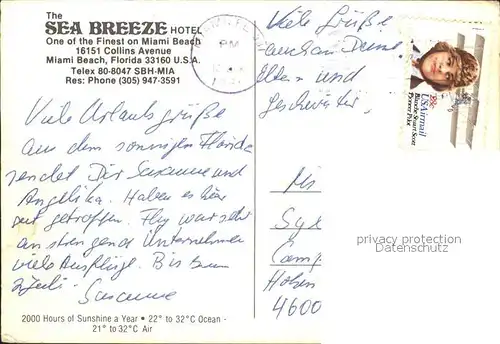 The
SEA BREEZE HOTEL
One of the Finest on Miami Beach
16151 Collins Avenue
Miami Beach, Florida 33160 U.S.A.
Telex 80-8047 SBH-MIA
Res: Phone (305) 947-3591
Viele Urlaubsgrüße
aus dem sonnigen Florida
sendet Dir Susanne und
Angelika. Haben es hier
gut getroffen. Flug war sehr
anstrengend. Unternehmen
viele Ausflüge. Bis zum
Susanne
2000 Hours of Sunshine a Year • 22° to 32°C Ocean -
21° to 32°C Air
PM
Viele Grüße
auch an Deine
Eltern und
Geschwister,
USAirmail
Blanche Stuart Scott
Pioneer Pilot
28c
Ms
4600
privacy protection
Datenschutz